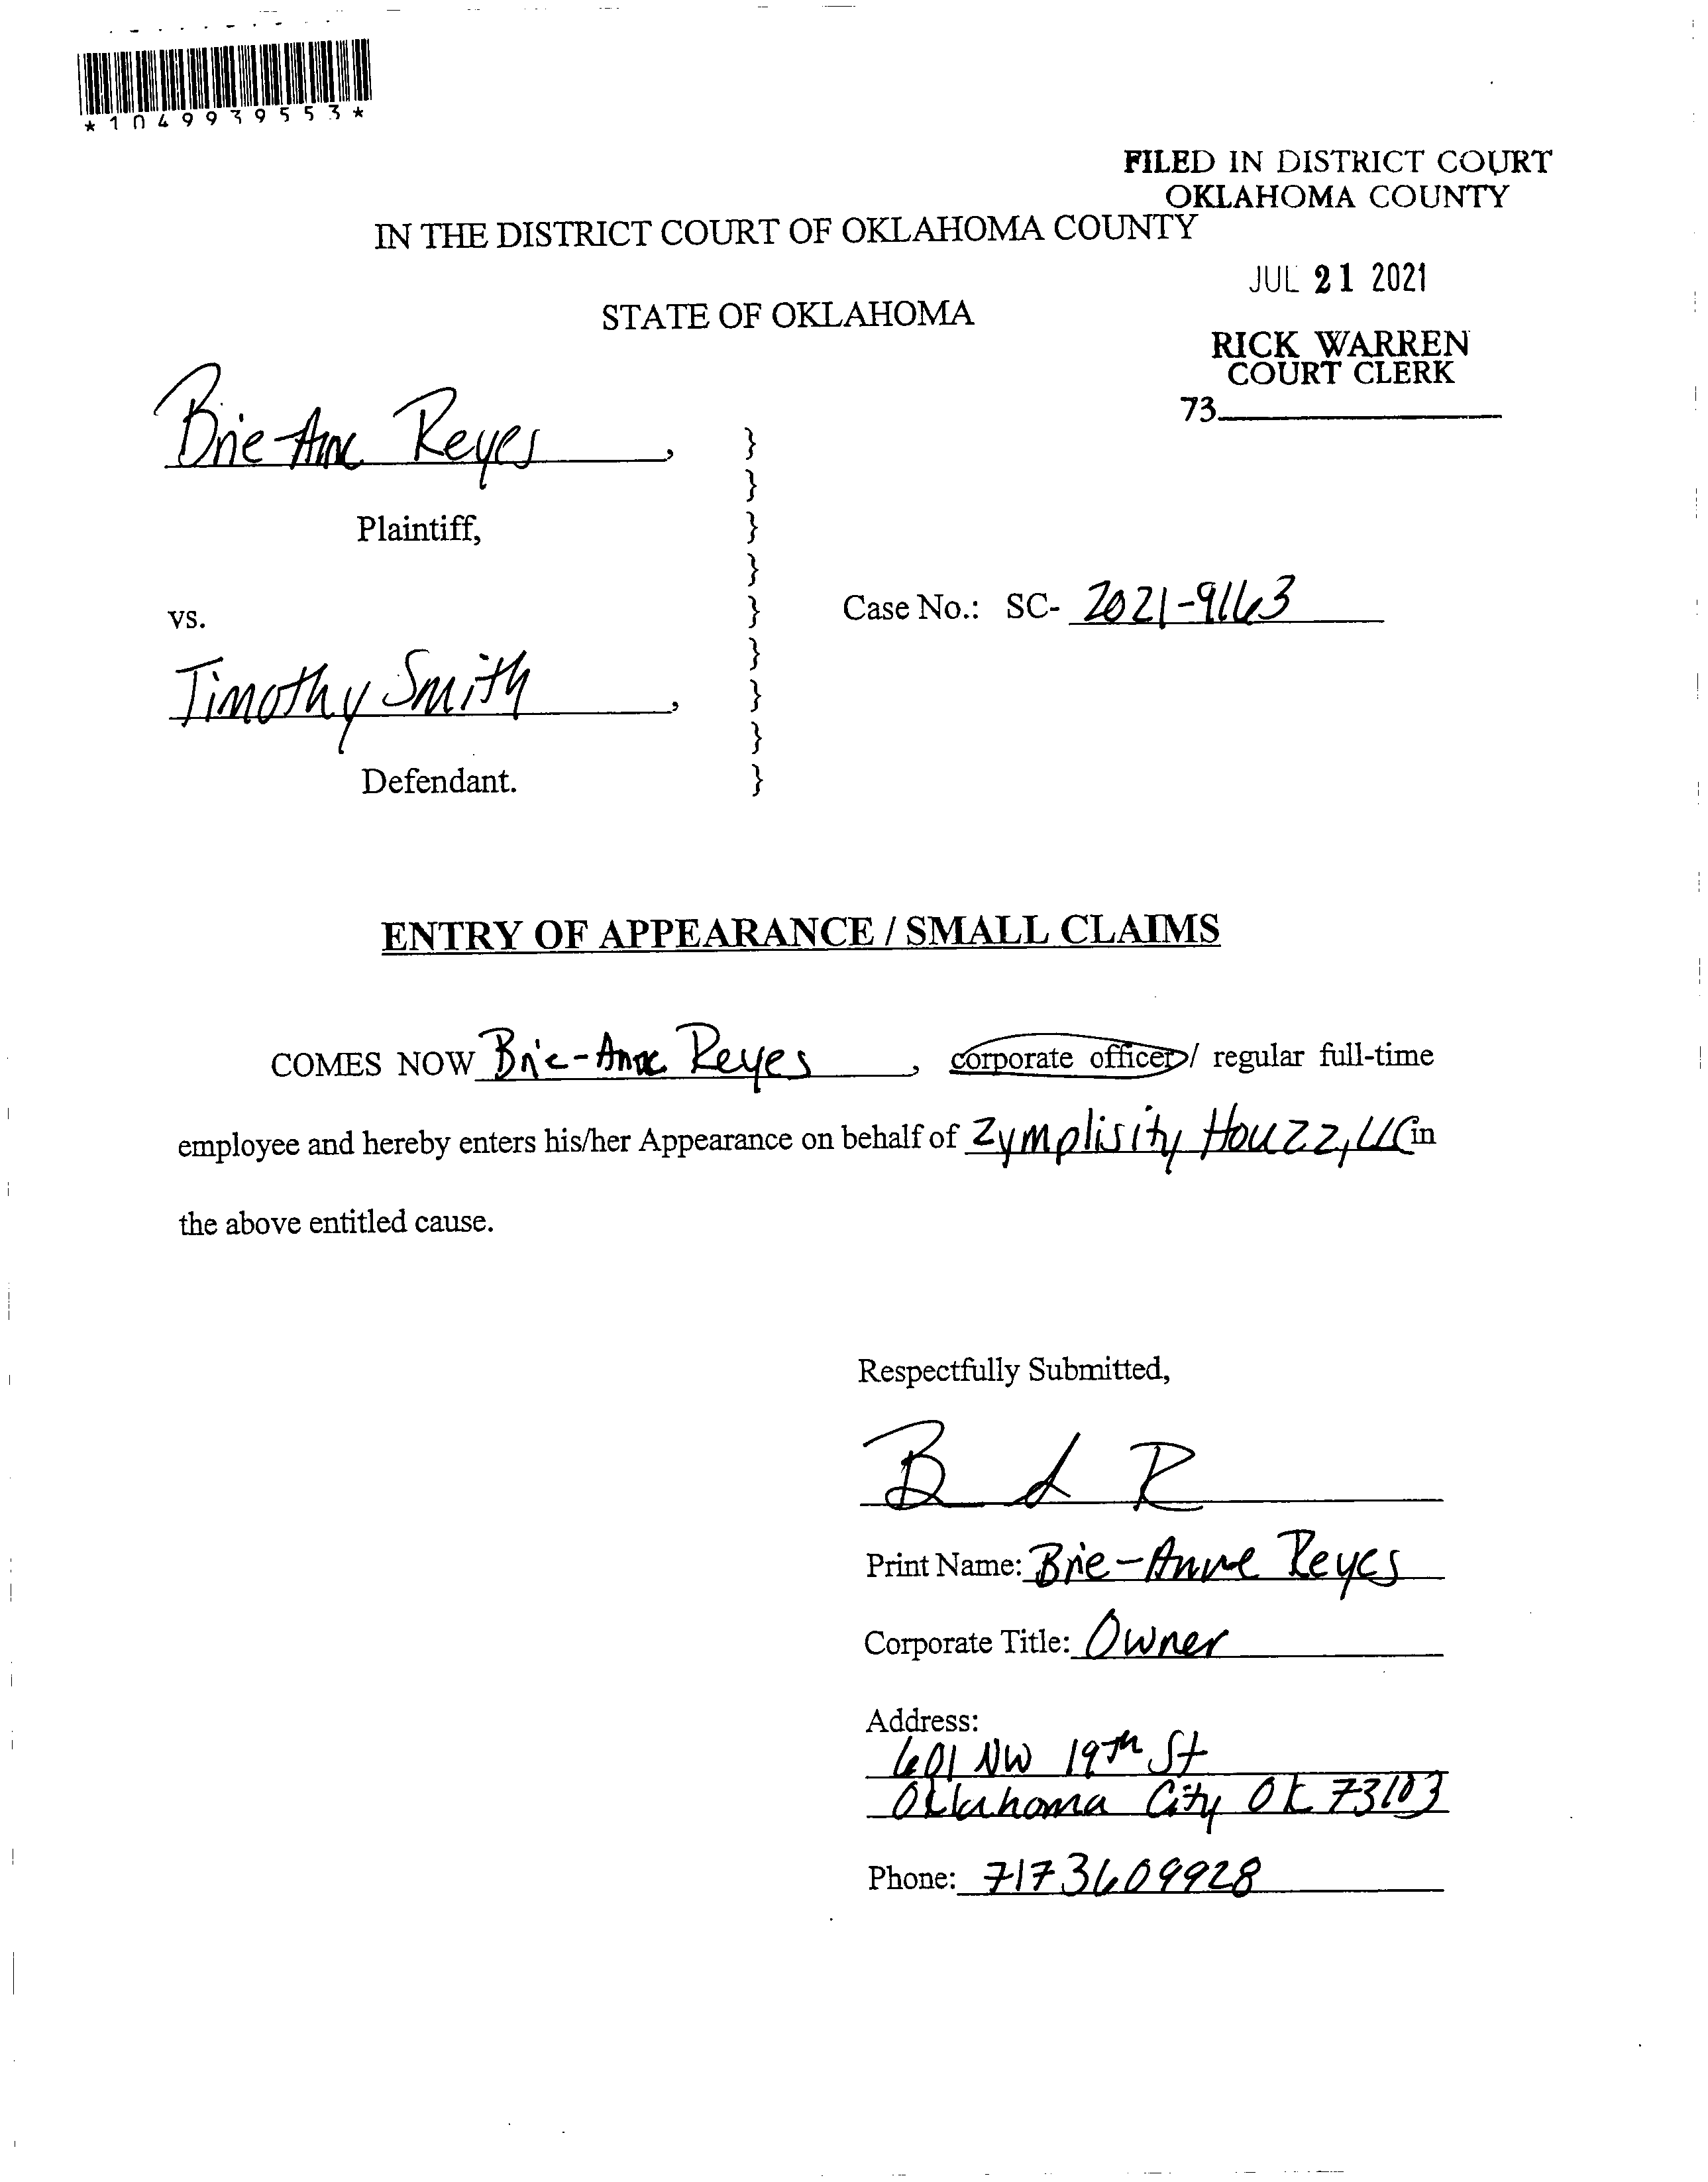 *1049939553*
FILED IN DISTRICT COURT
OKLAHOMA COUNTY
IN THE DISTRICT COURT OF OKLAHOMA COUNTY
JUL 21 2021
STATE OF OKLAHOMA
RICK WARREN
COURT CLERK
73
Brie-Anne Reyes,
Plaintiff,
vs.
Case No.: SC- 2021-9163
Timothy Smith,
Defendant.
ENTRY OF APPEARANCE / SMALL CLAIMS
COMES NOW Brie-Anne Reyes, corporate officer/ regular full-time
employee and hereby enters his/her Appearance on behalf of Zymplisity Houzz, LLC in
the above entitled cause.
Respectfully Submitted,
B A R
Print Name: Brie-Anne Reyes
Corporate Title: Owner
Address:
601 NW 19th St
Oklahoma City OK 73103
Phone: 7173609928